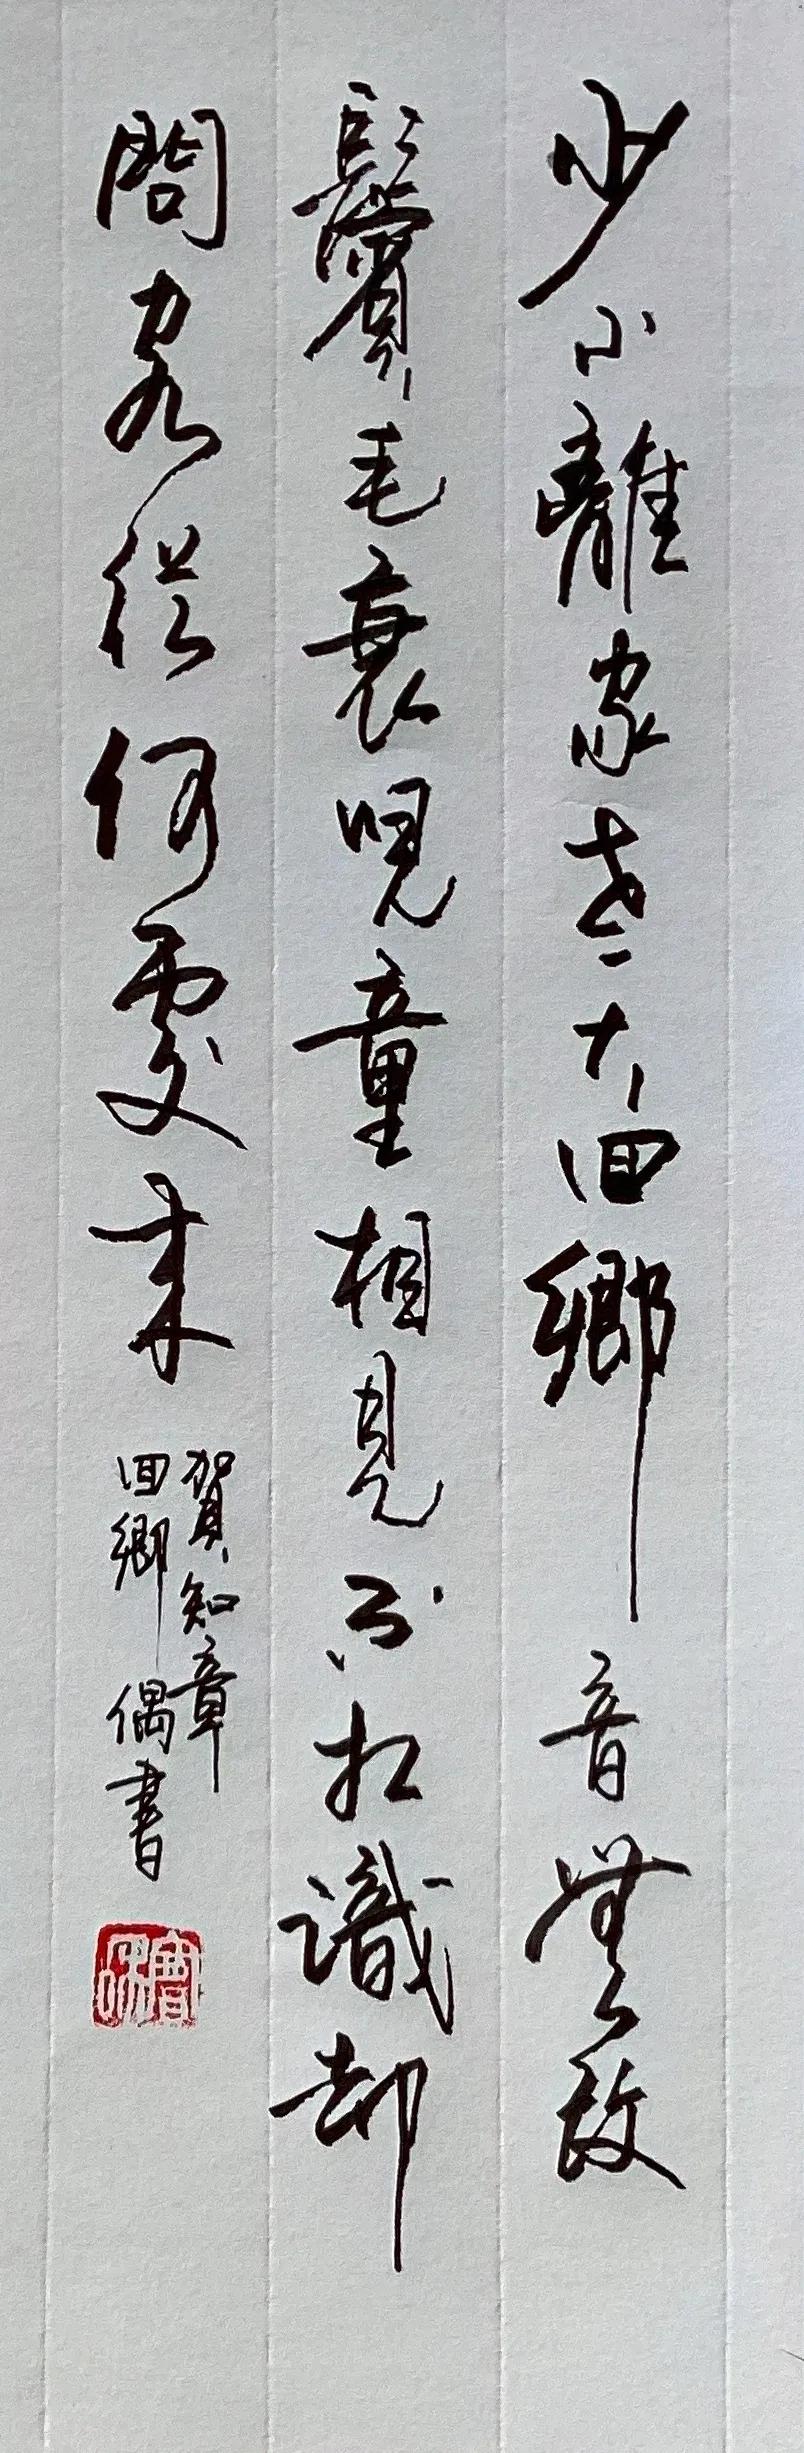 少小離家老大回鄉音無改
鬢毛衰兒童相見不相識却
問客從何處來
賀知章
回鄉偶書